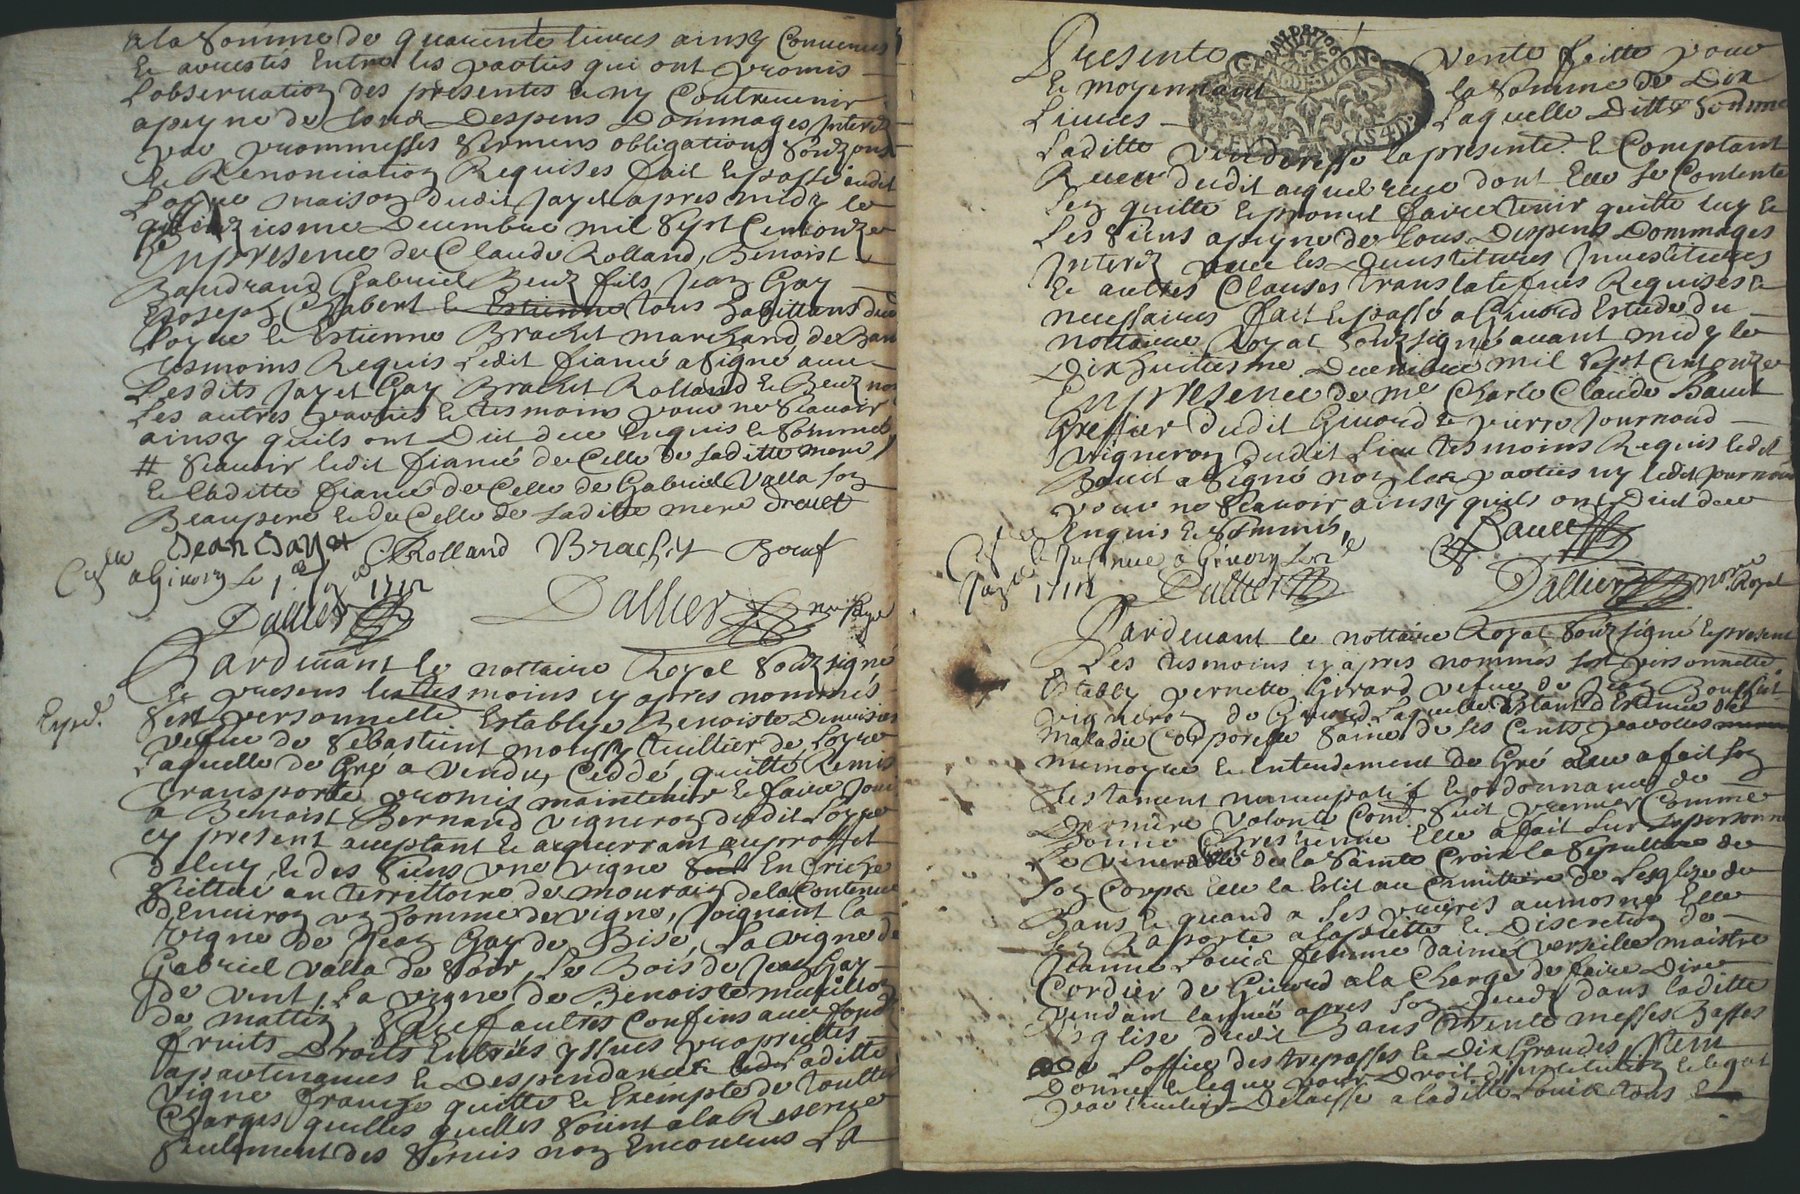 a la somme de quarente livres ainsy convenus
et arrestés entre les parties qui ont promis
l'observation des presentes et ny contrevenir
apeyne de tous despens dommages interetz
par promesses sermens obligations
et Renonciation Requises fait et passé audit
Loyre maison dudit Jayet apres midy le
quinziesme Decembre mil sept cent onze
En presence de Claude Rolland, Benoist
Baudrand Gabriel Beuf fils Jean Gay
et Joseph Chabert tous habittans dud
Loyre et Estienne Brachet marchand de
tesmoins Requis ledit fiancé a signé avec
Lesdits Jayet Gay Brachet Rolland et Beuf non
Les autres parties et tesmoins pour ne scavoir
ainsy quils ont dit de ce enquis et sommés
# scavoir ledit fiancé de Celle de saditte mere
et laditte fiancé de Celle de Gabriel Valla son
Beaupere et de Celle de saditte mere
Jean Jayet C Rolland Brachet Boeuf
a Givors le 1712
Dallier Dallier nre Royal
Pardevant le nottaire Royal soubzsigné
et presens les tesmoins cy apres nommés
Exped.
sest personnelle. Establye Benoiste
vefve de Sebastient tuillier de Loyre
Laquelle de Gré a vendu, Ceddé, quitté Remis
Transporté promis maintenir et faire Jouir
a Benoist Bernard vigneron dudit Loyre
cy present acceptant et acquerrant au proffit
de luy et des siens une vigne En friche
scittué au territoire de mourain de la Contenue
d'Environ un homme de vigne, Joignant la
vigne de Jean Gay de Bise, La vigne de
Gabriel Valla de soir, Le Bois de Jean Gay
de vent, La vigne de Benoiste
de mattin, sauf autres Confins avec fond
fruits Droits Entrées yssues proprietés
apartenances et Despendances de laditte
vigne franche quitte et Exempte de touttes
Charges quelles quelles soient a la Reserve
seulement des servis non Encourus La
Presente vente faitte pour
Et moyennant la somme de Dix
Livres Laquelle Ditte somme
Laditte venderesse la presente et Comptant
Receu dudit acquereur dont Elle se Contente
Len quitte et promet faire tenir quitte luy et
Les siens apeyne de tous Despens Dommages
Interetz avec les Devestitures Investitures
Et autres Clauses translatives Requises et
necessaires fait et passé a Givord Estude du
nottaire Royal soubzsigné avant midy le
Dixhuitiesme Decembre mil sept cent onze
En presence de me Charle Claude Bault
Greffier dudit Givord et pierre Journoud
vigneron dudit Lieu tesmoins Requis ledit
Bault a signé non les parties ny ledit Journoud
pour ne scavoir ainsy quils ont dit de ce
Enquis et sommés,
Bault
a Givors le
1712 Dallier Dallier nore Royal
Pardevant le nottaire Royal soubzsigné et present
Les tesmoins cy apres nommés sest personnelle.
Establye pernette Girard vefve de Jean
vigneron de Givord Laquelle Estant Detenue de
Maladie Corporelle saine de ses Cents parolles
memoyre et Entendement De Gré Elle a fait son
testament nuncupatif et ordonnance de
Derniere volonté Com. suit premier Comme
Bonne Chrestienne Elle a fait sur sa personne
Le venerable de la sainte Croix la sepulture de
son Corps Elle la Eslit au Cimittiere de Lesglise de
Bans et quand a ses prieres aumosne Elle
sen Raporte a la pietté et Discretion de
Jeanne Louis femme maistre
Cordier de Givord a la Charge de faire Dire
pendant lannée apres son decedz dans laditte
Esglise dudit Bans trente messes Basses
de L'office des trepasses et Dix Grandes, Item
Donne et legue pour Droit d'institution et legat
Delaisse a laditte Louis tous